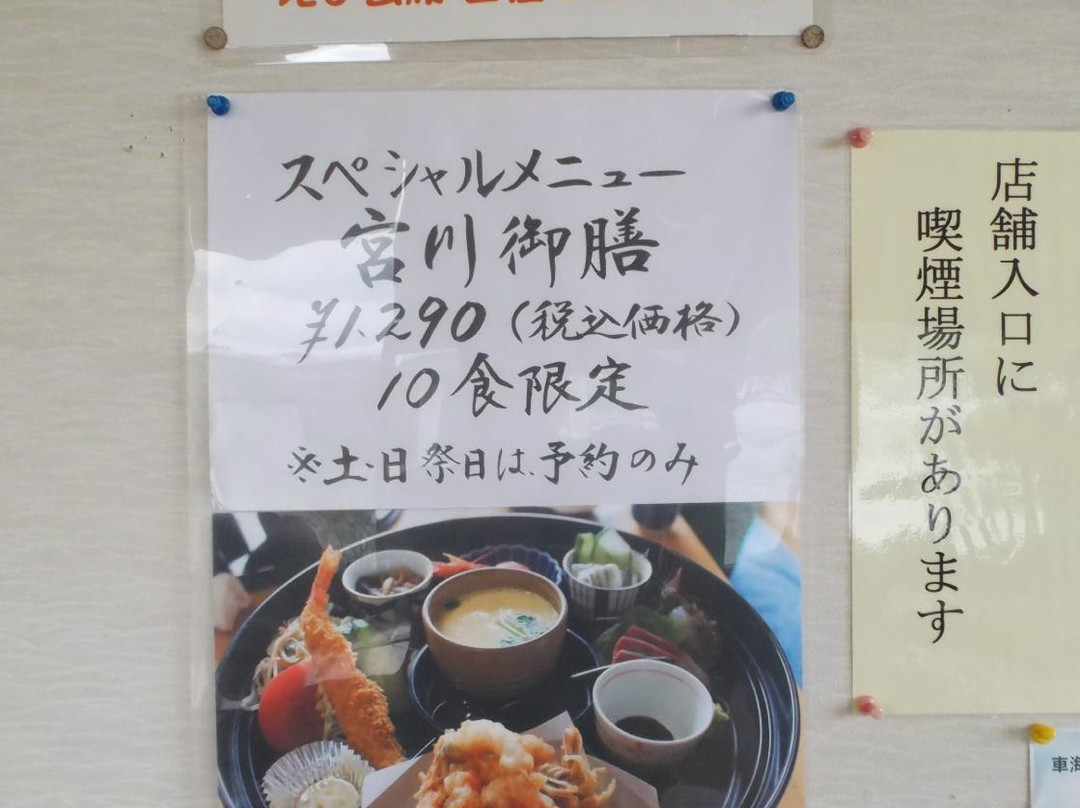 スペシャルメニュー
宮川御膳
¥1.290（税込価格）
10食限定
※土・日祭日は、予約のみ
店舗入口に
喫煙場所があります
車海